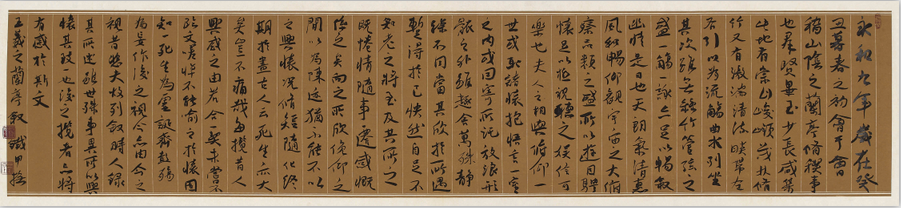 永和九年歲在癸
丑暮春之初會于會
稽山陰之蘭亭脩稧事
也羣賢畢至少長咸集
此地有崇山峻領茂林脩
竹又有清流激湍暎帶左
右引以為流觴曲水列坐
其次雖無絲竹管弦之
盛一觴一詠亦足以暢敘
幽情是日也天朗氣清惠
風和暢仰觀宇宙之大俯
察品類之盛所以遊目騁
懷足以極視聽之娛信可
樂也夫人之相與俯仰一
世或取諸懷抱悟言一室
之內或因寄所託放浪形
骸之外雖趣舍萬殊靜
躁不同當其欣於所遇
暫得於己快然自足不
知老之將至及其所之
既惓情隨事遷感慨
係之矣向之所欣俛仰之
間以為陳迹猶不能不以
之興懷況脩短隨化終
期於盡古人云死生亦大
矣豈不痛哉每攬昔人
興感之由若合一契未嘗不
臨文嗟悼不能喻之於懷固
知一死生為虛誕齊彭殤
為妄作後之視今亦由今之
視昔悲夫故列敘時人錄
其所述雖世殊事異所以興
懷其致一也後之攬者亦將
有感於斯文
王羲之蘭亭敘